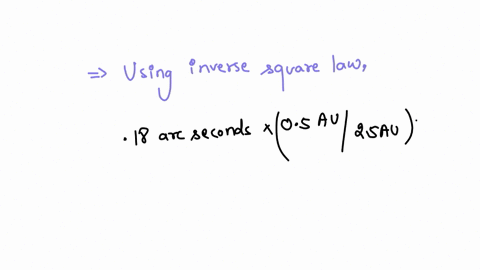 => Using inverse square law,
.18 arc seconds × (0.5 AU / 2.5 AU).